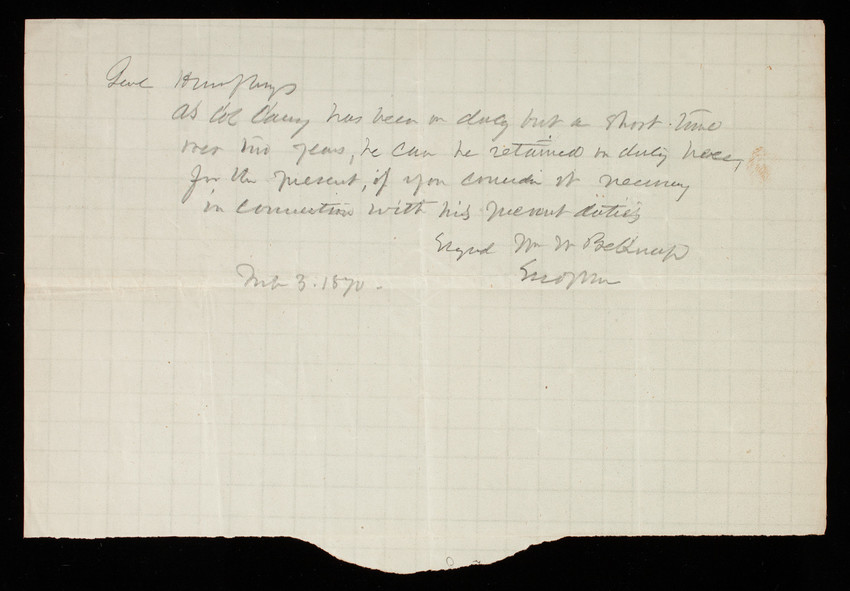 Genl Humphreys
As Col Casey has been on duty but a short time
over two years, he can be retained on duty here,
for the present, if you consider it necessary
in connection with his present duties
Signed Wm W Belknap
Sec of War
3. 1870.